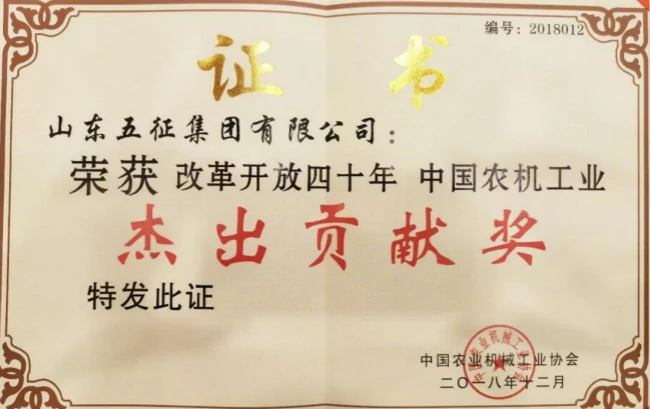 编号：2018012
证 书
山东五征集团有限公司：
荣获 改革开放四十年 中国农机工业
杰出贡献奖
特发此证
中国农业机械工业协会
中国农业机械工业协会
二〇一八年十二月